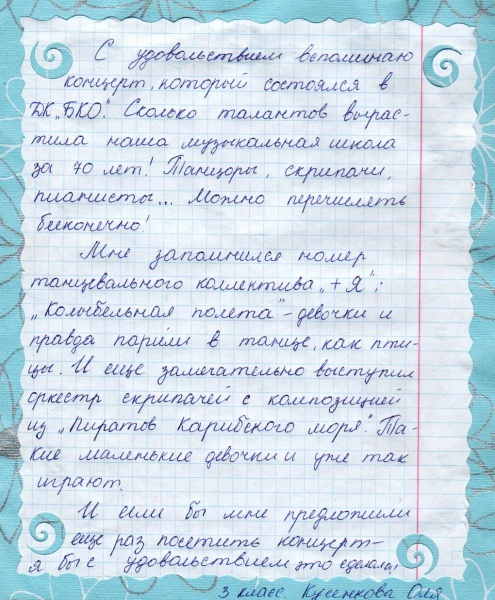 С удовольствием вспоминаю
концерт, который состоялся в
ДК „БКО". Сколько талантов вырас-
тила наша музыкальная школа
за 70 лет! Танцоры, скрипачи,
пианисты... Можно перечислять
бесконечно!
Мне запомнился номер
танцевального коллектива „+Я":
„Колыбельная полета" - девочки и
правда парили в танце, как пти-
цы. И еще замечательно выступил
оркестр скрипачей с композицией
из „Пиратов Карибского моря". Та-
кие маленькие девочки и уже так
играют.
И если бы мне предложили
еще раз посетить концерт-
я бы с удовольствием это сделала!
3 класс Кусенкова Оля